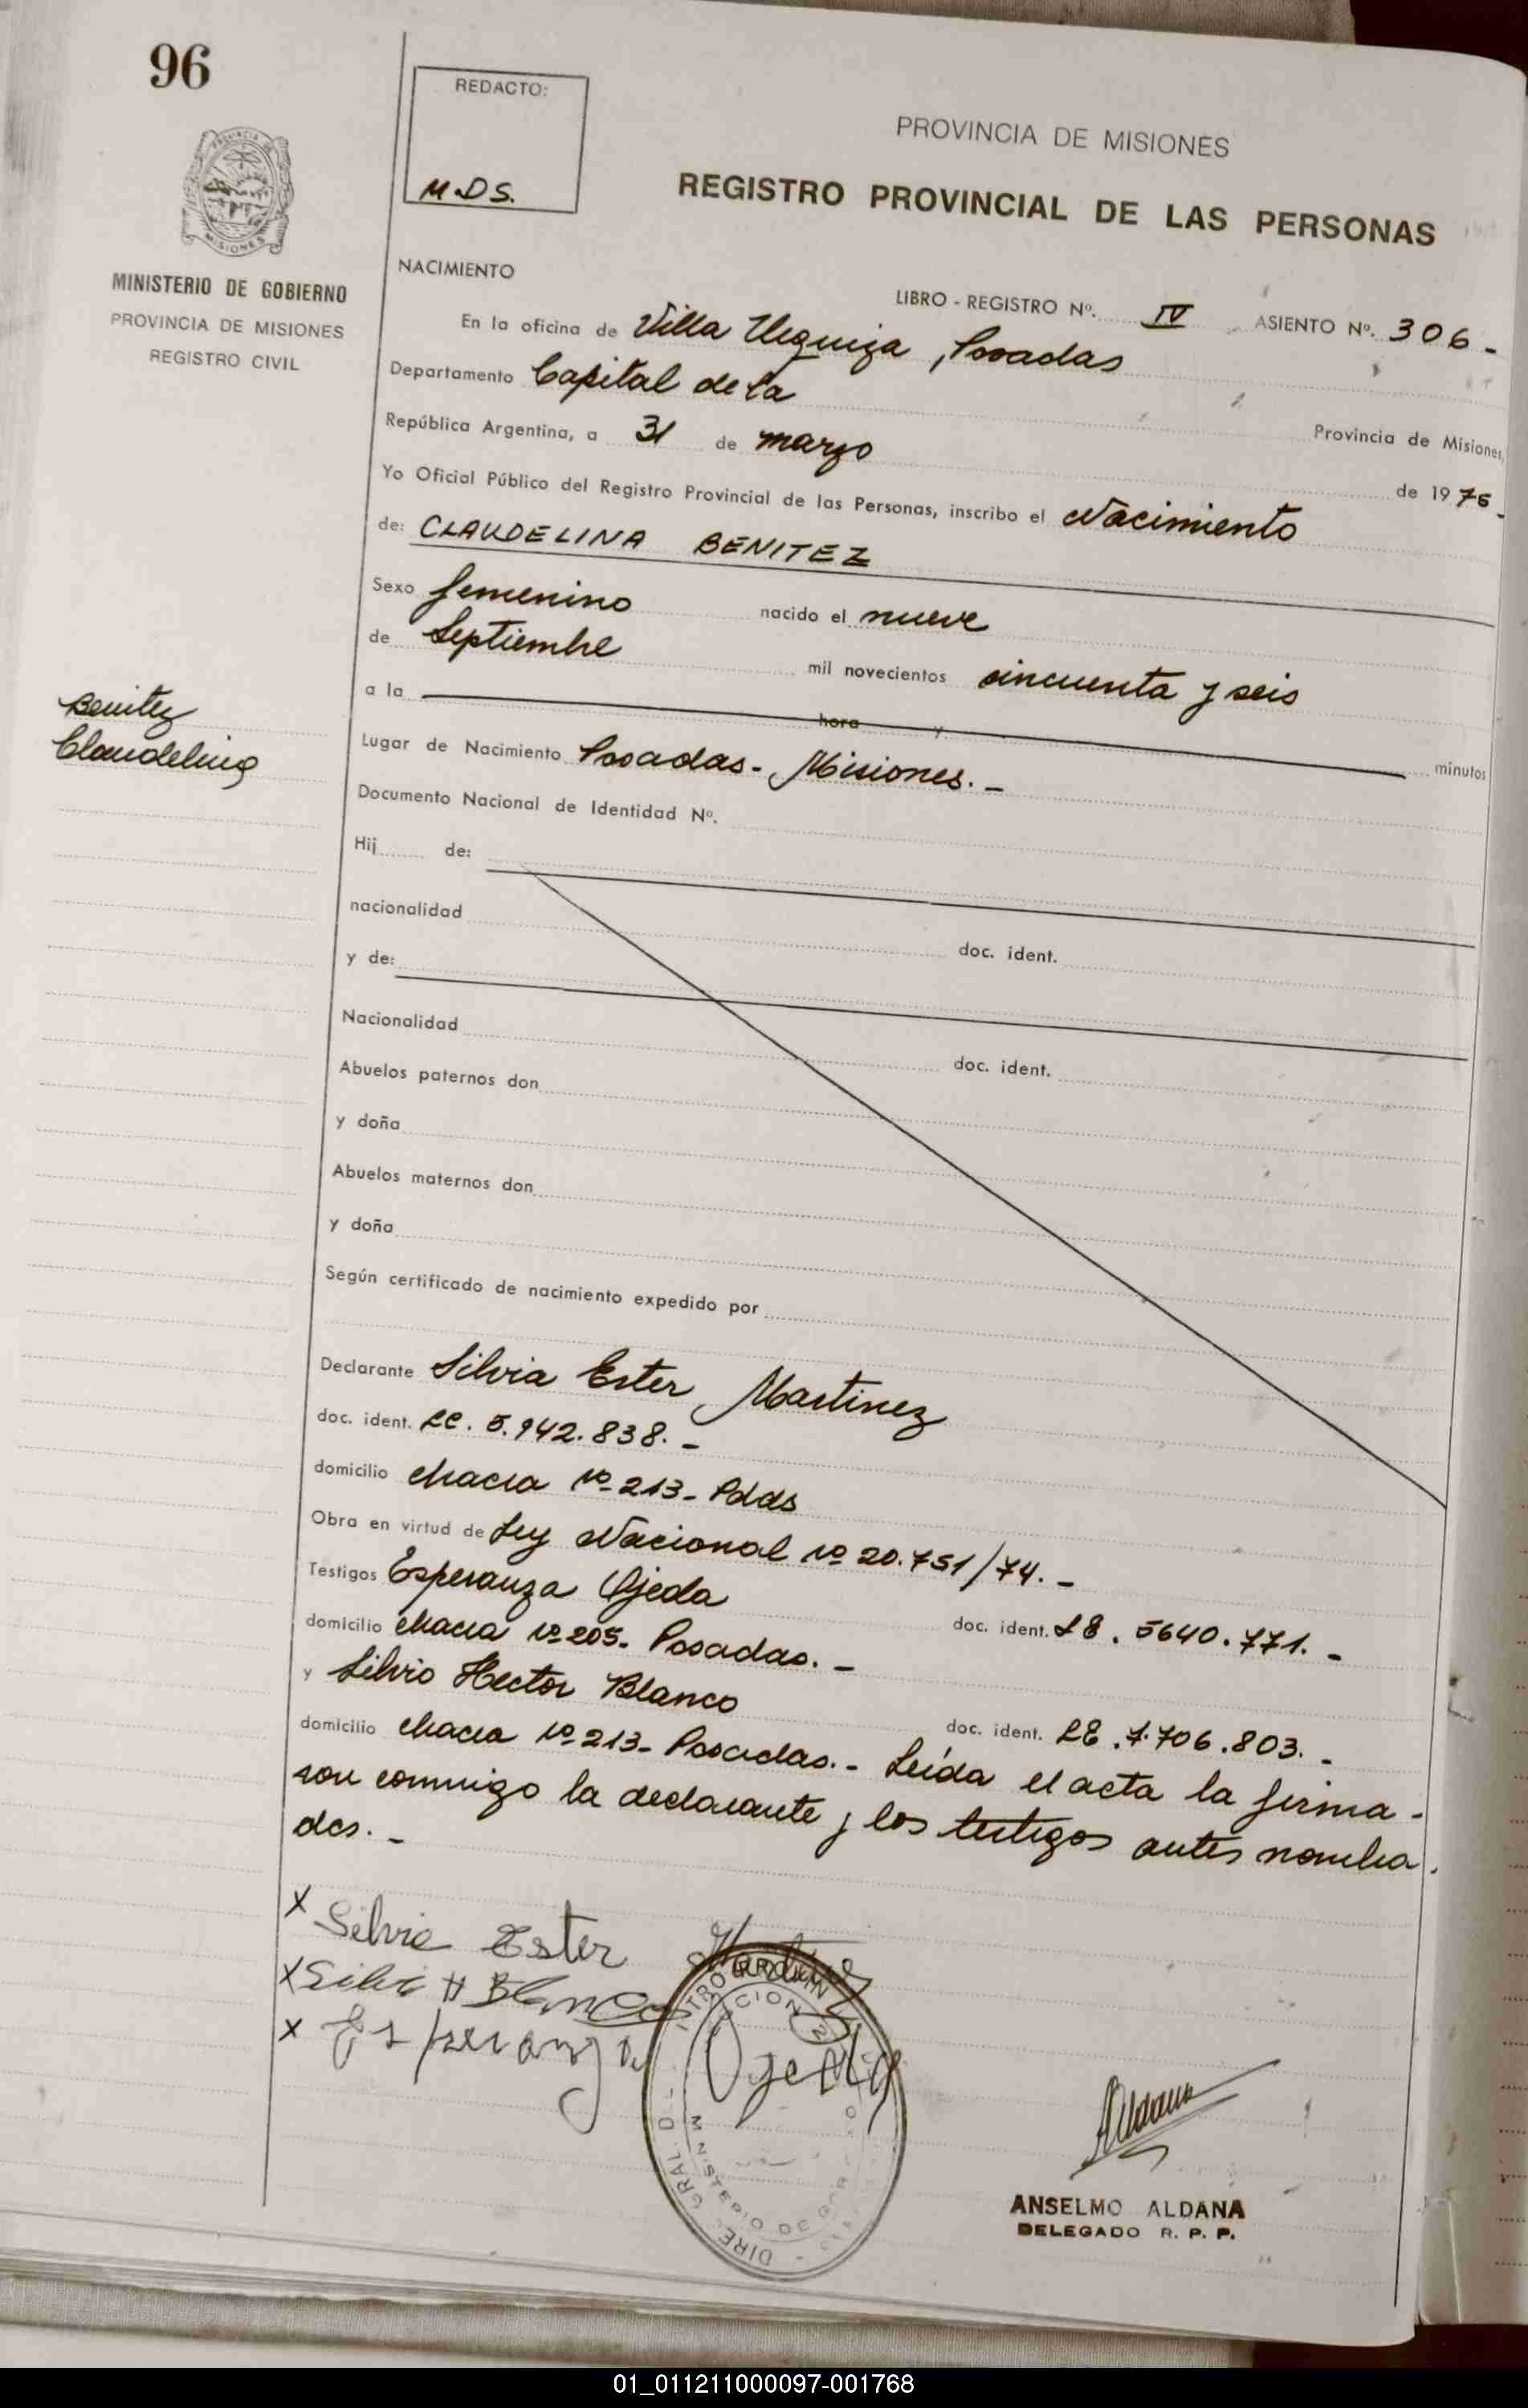 96
REDACTO:
M.D.S.
PROVINCIA DE MISIONES
REGISTRO PROVINCIAL DE LAS PERSONAS
MISIONES
MINISTERIO DE GOBIERNO
PROVINCIA DE MISIONES
REGISTRO CIVIL
NACIMIENTO
LIBRO - REGISTRO Nº. IV ASIENTO Nº. 306 -
En la oficina de Villa Urquiza, Posadas
Departamento Capital de la
Provincia de Misiones,
República Argentina, a 31 de marzo
de 19 75.
Yo Oficial Público del Registro Provincial de las Personas, inscribo el Nacimiento
de: CLAUDELINA BENITEZ
Sexo femenino nacido el nueve
de Septiembre mil novecientos cincuenta y seis
a la hora y minutos
Benitez
Claudelina
Lugar de Nacimiento Posadas - Misiones. -
Documento Nacional de Identidad Nº.
Hij de:
nacionalidad doc. ident.
y de:
Nacionalidad doc. ident.
Abuelos paternos don
y doña
Abuelos maternos don
y doña
Según certificado de nacimiento expedido por
Declarante Silvia Ester Martinez
doc. ident. LC. 5.942.838. -
domicilio chacra Nº 213 - Pdas
Obra en virtud de Ley Nacional Nº 20.751/74. -
Testigos Esperanza Ojeda
doc. ident. LE. 5640.771. -
domicilio chacra Nº 205. Posadas. -
y Silvio Hector Blanco
doc. ident. LE. 7.706.803. -
domicilio chacra Nº 213 - Posadas. - Leída el acta la firma-
ron conmigo la declarante y los testigos antes nombra-
dos. -
x Silvia Ester Martinez
x Silvi H Blanco
x Esperanza Ojeda
MINISTERIO DE
GRAL.
DIRE
ANSELMO ALDANA
DELEGADO R. P. P.
01_011211000097-001768